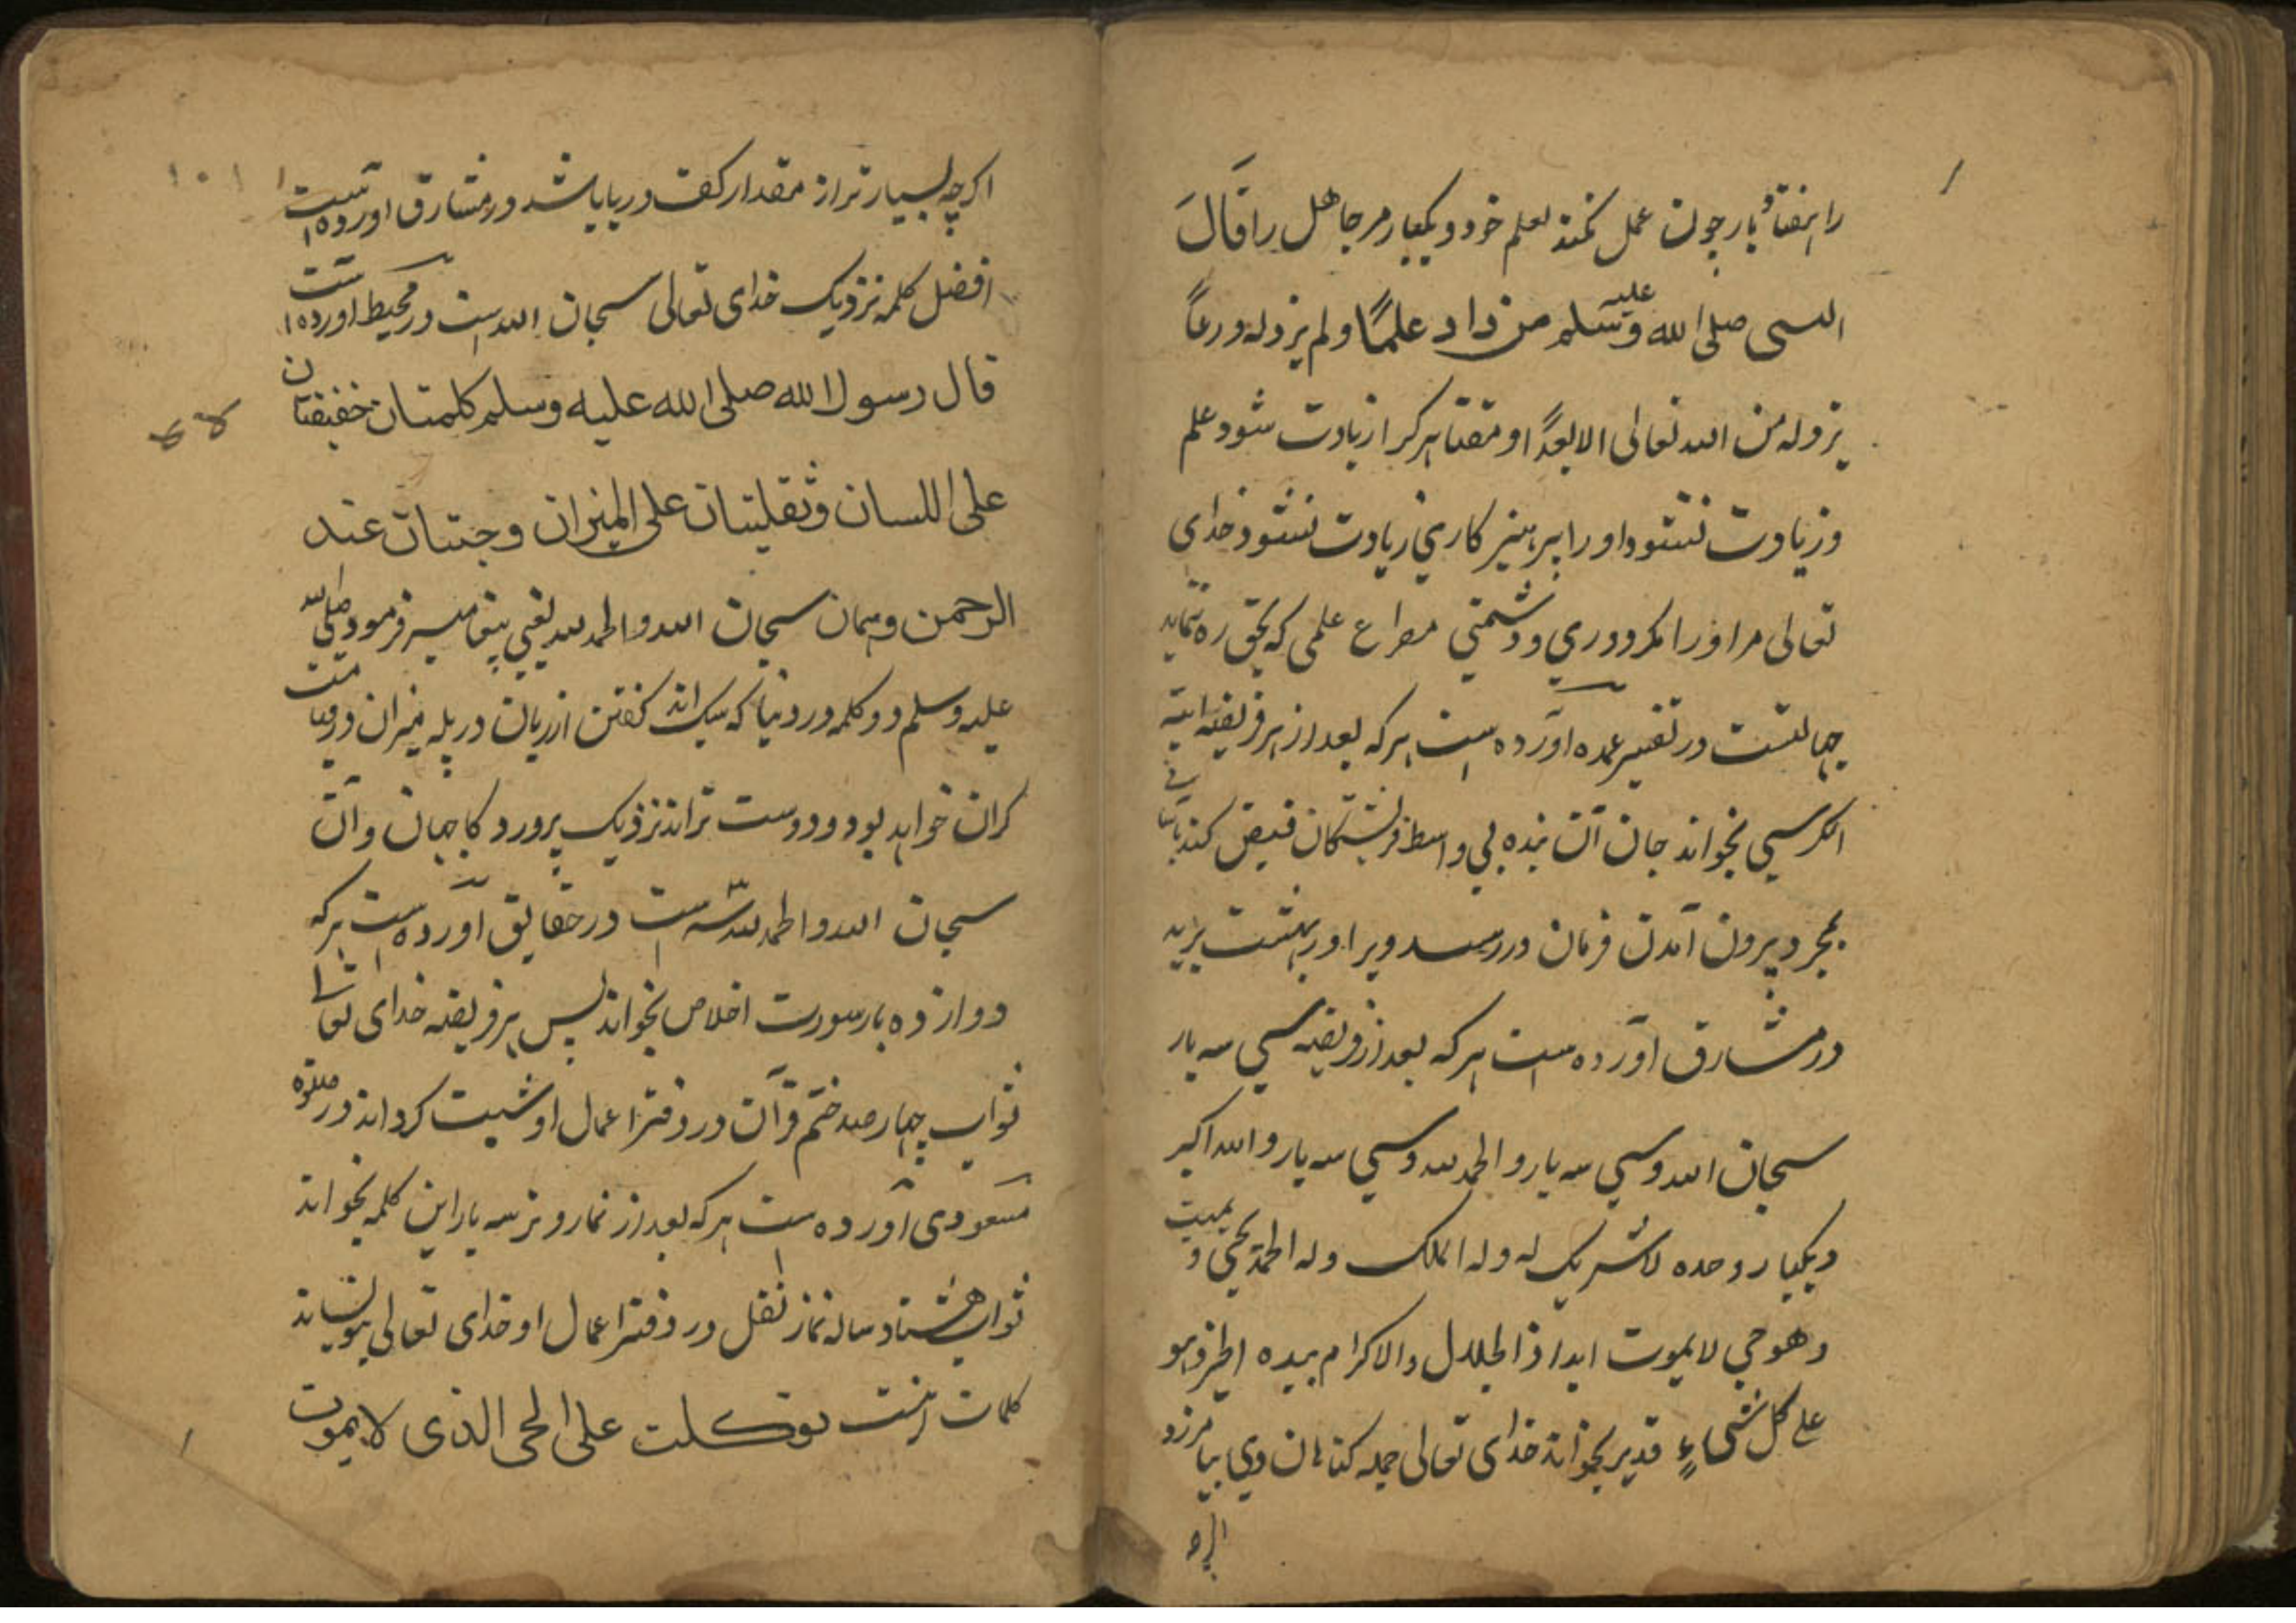 را هفتاد بار چون عمل نکند بعلم خود و یکبار مر جاهل را قَالَ
النبی صلی الله علیه وسلم من زداد علمًا ولم یزدله ورعًا
یزدله من الله تعالی الا بعدًا و مقتا هر کرا زیادت شود علم
و زیادت نشود او را پرهیز کاری زیادت نشود خدای
تعالی مر او را مکر دوری و دشمنی مصراع علمی که بحق ره ننماید
جهالتست در تفسیر عمده آورده است هر که بعد از هر فریضه ایة
الکرسی بخواند جان آن بنده بی واسط فرشتکان قبض کند
بمجرد بیرون آمدن فرمان در رسد ویرا در بهشت برید
در مشارق آورده است هر که بعد از فریضه سی سه بار
سبحان الله و سی سه بار و الحمد لله و سی سه بار و الله اکبر
و یکبار وحده لا شریک له وله الملک وله الحمد یحی و یمیت
وهو حی لا یموت ابدا ذالجلال والاکرام بیده الخیر وهو
علی کل شیءٍ قدیر بخواند خدای تعالی جمله کناهان وی بیامرزد
اکرچه
اکرچه بسیارتر از مقدار کف دریا باشد در مشارق اورده است
افضل کلمه نزدیک خدای تعالی سبحان الله است در محیط اورده است
قال رسول الله صلی الله علیه وسلم کلمتان خفیفتان
علی اللسان وثقلیتان علی المیزان وحبتان عند
الرحمن و همان سبحان الله والحمد لله یعنی پیغامبر فرمود صلی الله
علیه وسلم دو کلمه در دنیا که سبک اند کفتن از زبان در پله میزان در قیامت
کران خواهد بود و دوست تراند نزدیک پروردکار جهان و آن
سبحان الله والحمد لله است در حقایق آورده است هر که
دوازده بار سورت اخلاص بخواند پس هر فریضه خدای تعالی
ثواب چهار صد ختم قرآن در دفتر اعمال او ثبت کرداند در صلوة
مسعودی آورده است هر که بعد از نماز وتر سه بار این کلمه بخواند
ثواب هشتاد ساله نماز نفل در دفتر اعمال او خدای تعالی بنویساند
کلمات اینست توکلت علی الحی الذی لا یموت
۱۰۱